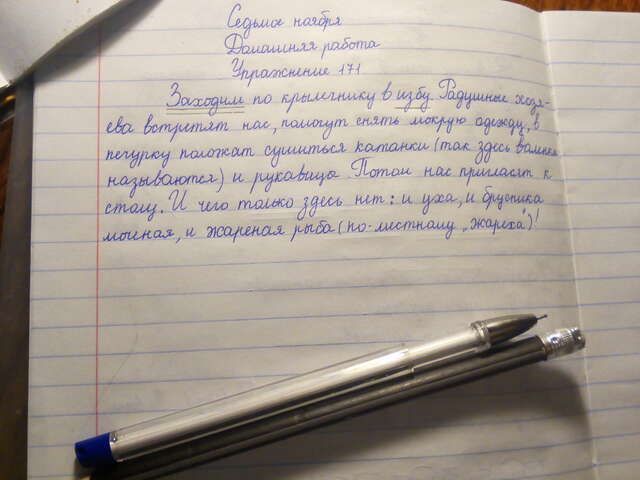 Седьмое ноября
Домашняя работа
Упражнение 171
Заходим по крылечнику в избу. Радушные хозя-
ева встретят нас, помогут снять мокрую одежду, в
печурку положат сушиться катанки (так здесь валенки
называются) и рукавицы. Потом нас пригласят к
столу. И чего только здесь нет: и уха, и брусника
моченая, и жареная рыба (по-местному „жареха")!